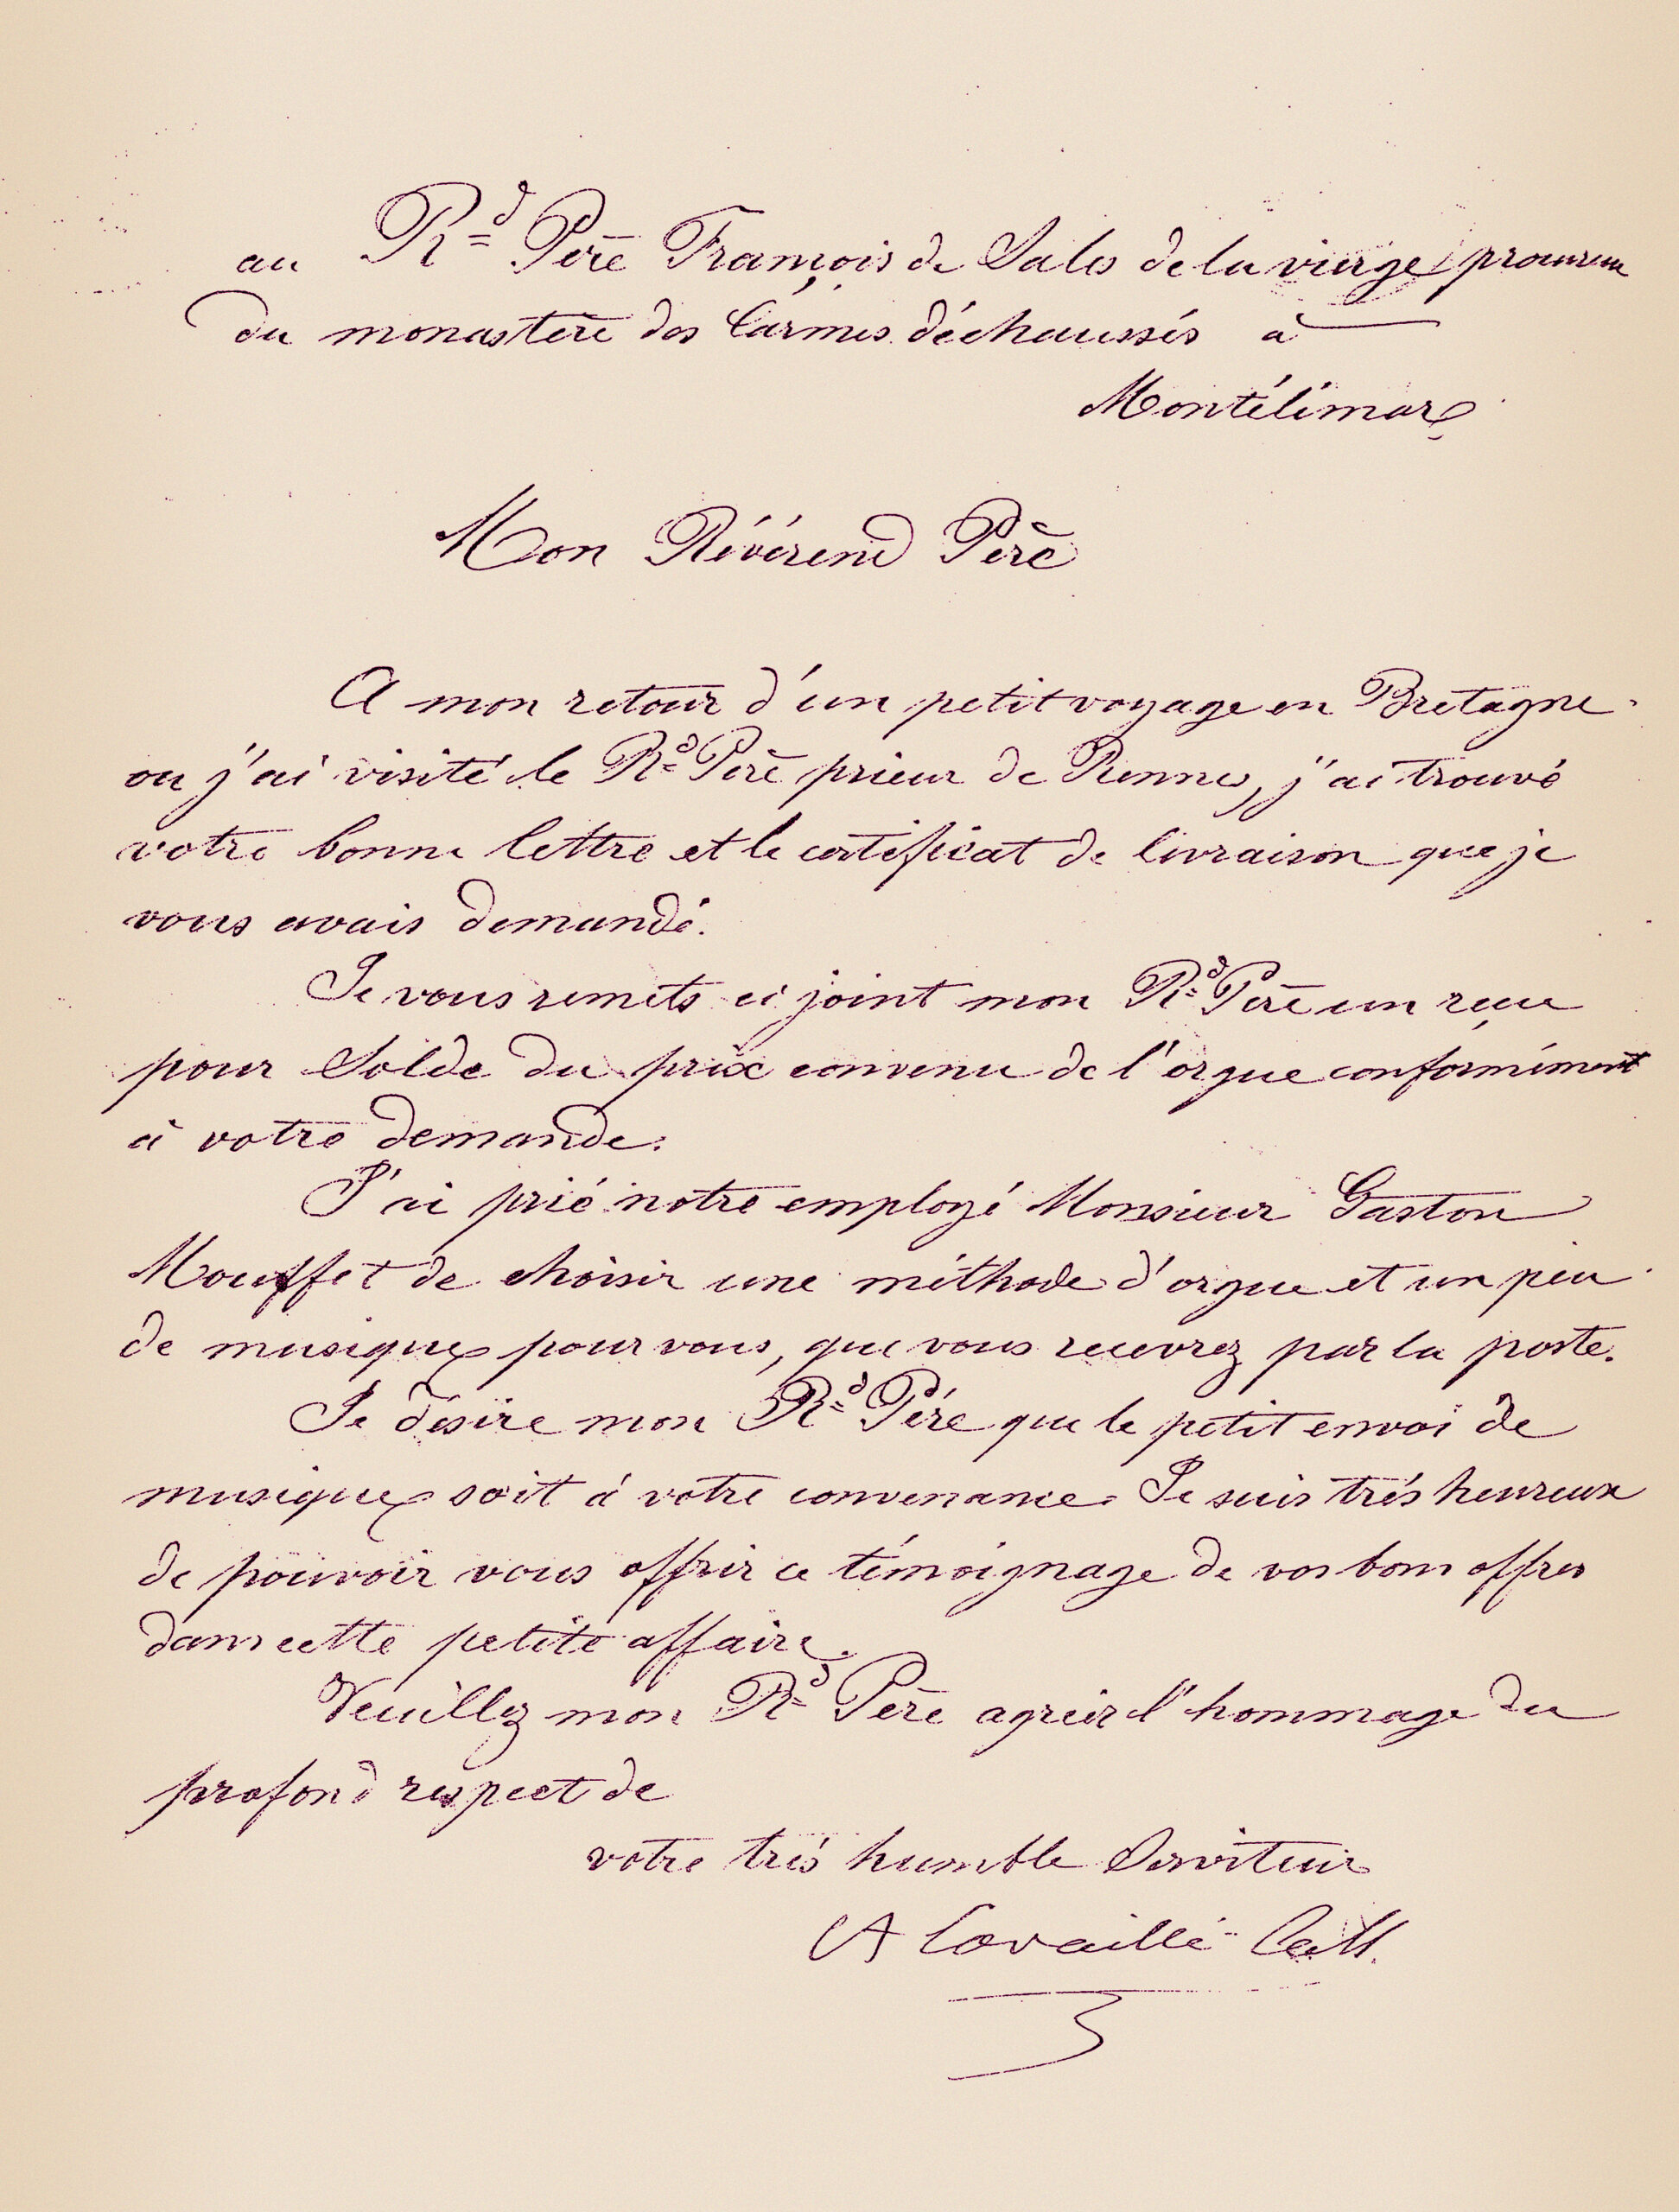 au Rd Père François de Sales de la vierge, procureur
du monastère des Carmes déchaussés à
Montélimar
Mon Révérend Père
A mon retour d'un petit voyage en Bretagne
ou j'ai visité le Rd Père prieur de Rennes, j'ai trouvé
votre bonne lettre et le certificat de livraison que je
vous avais demandé.
Je vous remets ci joint mon Rd Père un reçu
pour Solde du prix convenu de l'orgue conformément
à votre demande.
J'ai prié notre employé Monsieur Gaston
Mouffet de choisir une méthode d'orgue et un peu
de musique pour vous, que vous recevrez par la poste.
Je désire mon Rd Père que le petit envoi de
musique soit à votre convenance. Je suis très heureux
de pouvoir vous offrir ce témoignage de vos bons offres
dans cette petite affaire.
Veuillez mon Rd Père agréer l'hommage du
profond respect de
votre très humble Serviteur
A Cavaillé-Coll.